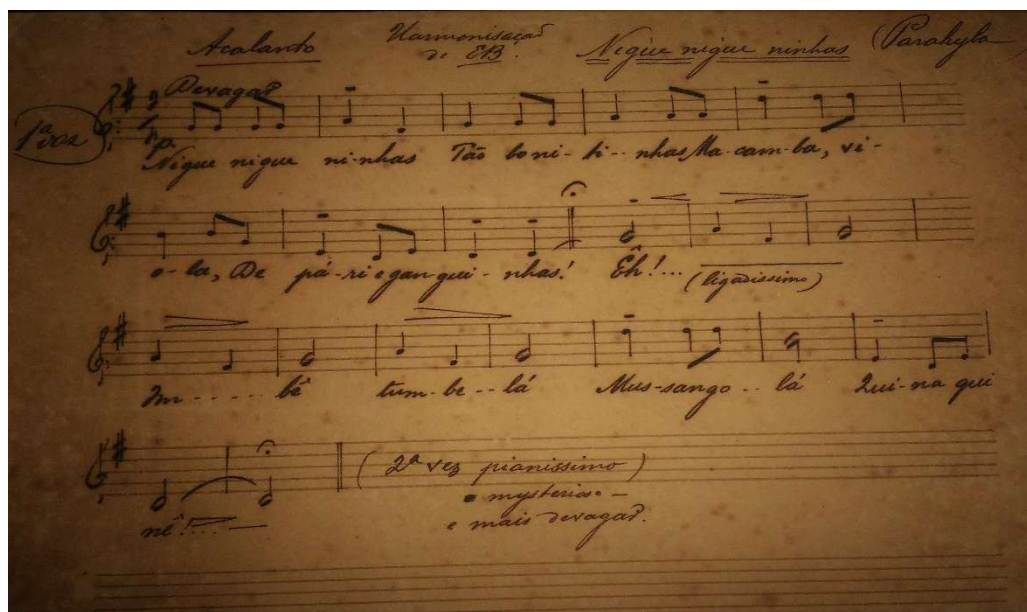 Acalanto Harmonisação de EB. Nigue nigue ninhas (Parahyba
1ª voz Devagar
p. Nigue nigue ni-nhas Tão boni-ti--nhas Ma-cam-ba, vi-
o-la, De pá-ri e gan gui-nhas! Êh!... (ligadissimo)
Im----- bê tum-be--lá Mus-sango--lá Qui-na qui
nê!...
(2ª vez pianissimo)
mysterio
e mais devagar.